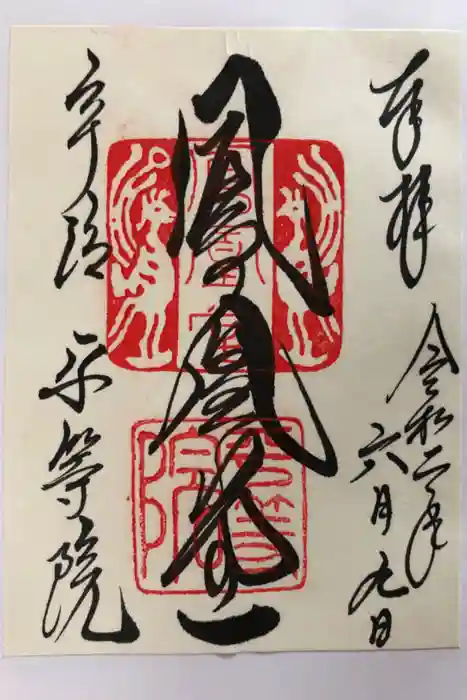 奉拝
令和二年
六月九日
鳳凰堂
宇治 平等院